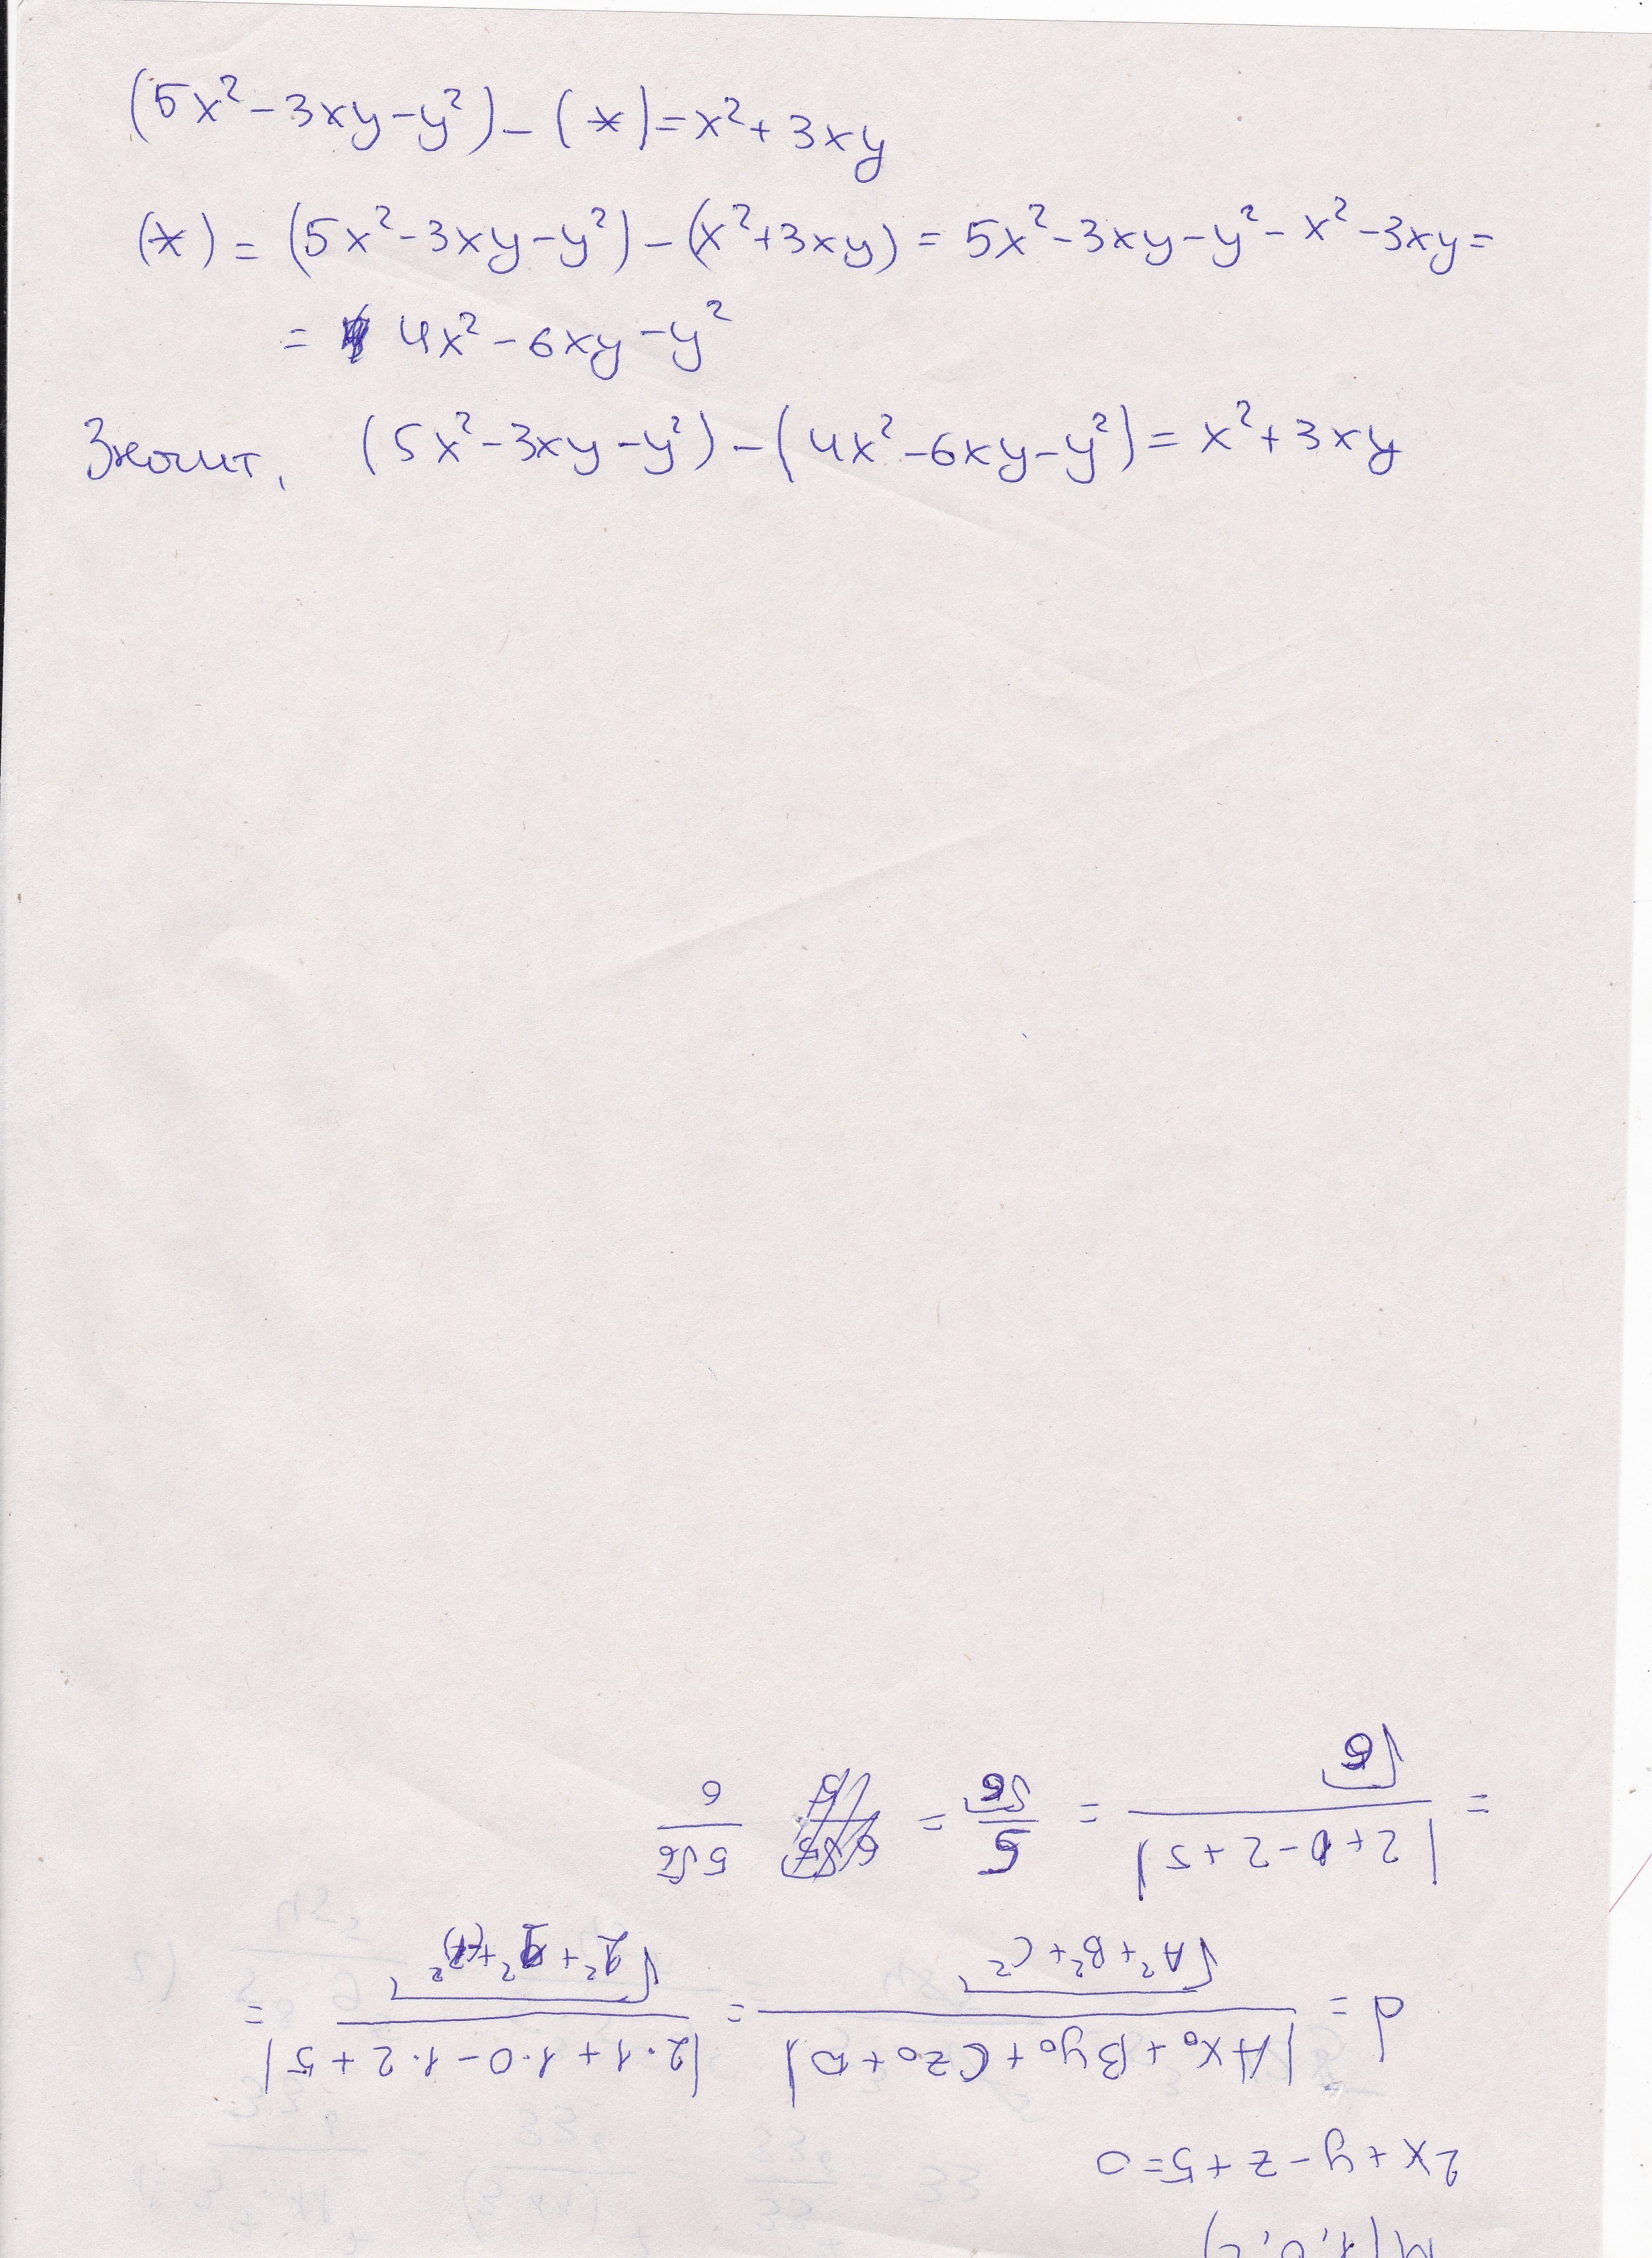 (5x²-3xy-y²)-(*)=x²+3xy
(*)=(5x²-3xy-y²)-(x²+3xy)=5x²-3xy-y²-x²-3xy=
= 4x²-6xy-y²
Значит, (5x²-3xy-y²)-(4x²-6xy-y²)=x²+3xy
M(1,0,2)
2x+y-z+5=0
d = |Ax₀+By₀+Cz₀+D| / √(A²+B²+C²) = |2·1+1·0-1·2+5| / √(2²+1²+(-1)²) =
= |2+0-2+5| / √6 = 5/√6 = 5√6/6